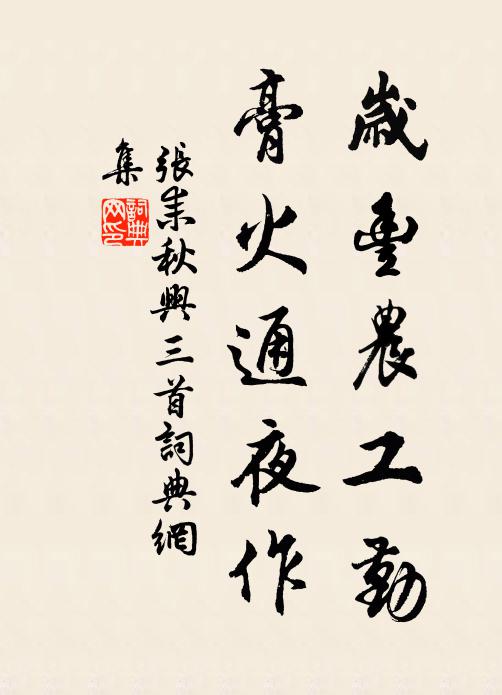 歲豊農工勤
膏火通夜作
張耒秋興三首詞典網
集
詞典
网印